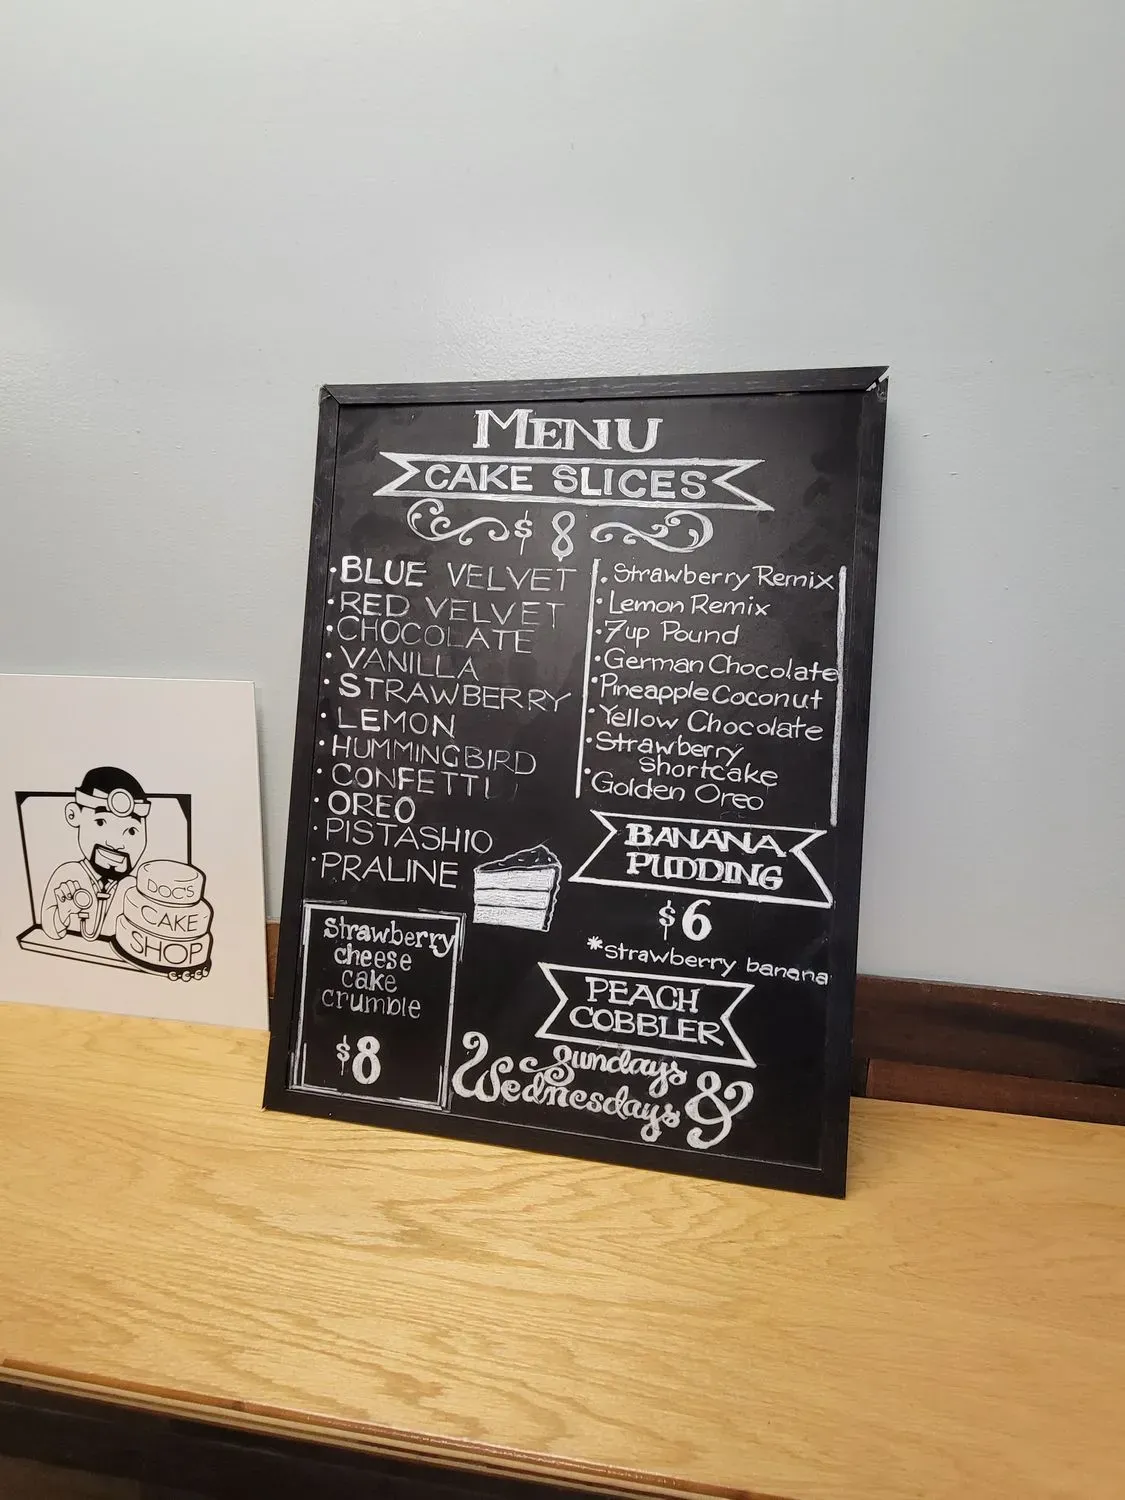 MENU
CAKE SLICES
$8
• BLUE VELVET
• RED VELVET
• CHOCOLATE
• VANILLA
• STRAWBERRY
• LEMON
• HUMMINGBIRD
• CONFETTI
• OREO
• PISTASHIO
• PRALINE
• Strawberry Remix
• Lemon Remix
• 7up Pound
• German Chocolate
• Pineapple Coconut
• Yellow Chocolate
• Strawberry
shortcake
• Golden Oreo
Strawberry
cheese
cake
crumble
$8
BANANA
PUDDING
$6
*strawberry banana
PEACH
COBBLER
Sundays
Wednesdays &
DOC'S
CAKE
SHOP